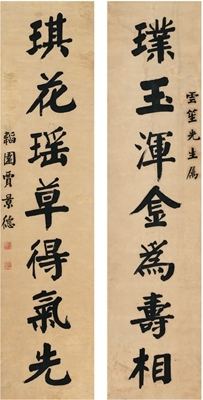 雲笙先生屬
璞玉渾金為壽相
琪花瑶草得氣先
韜園賈景德